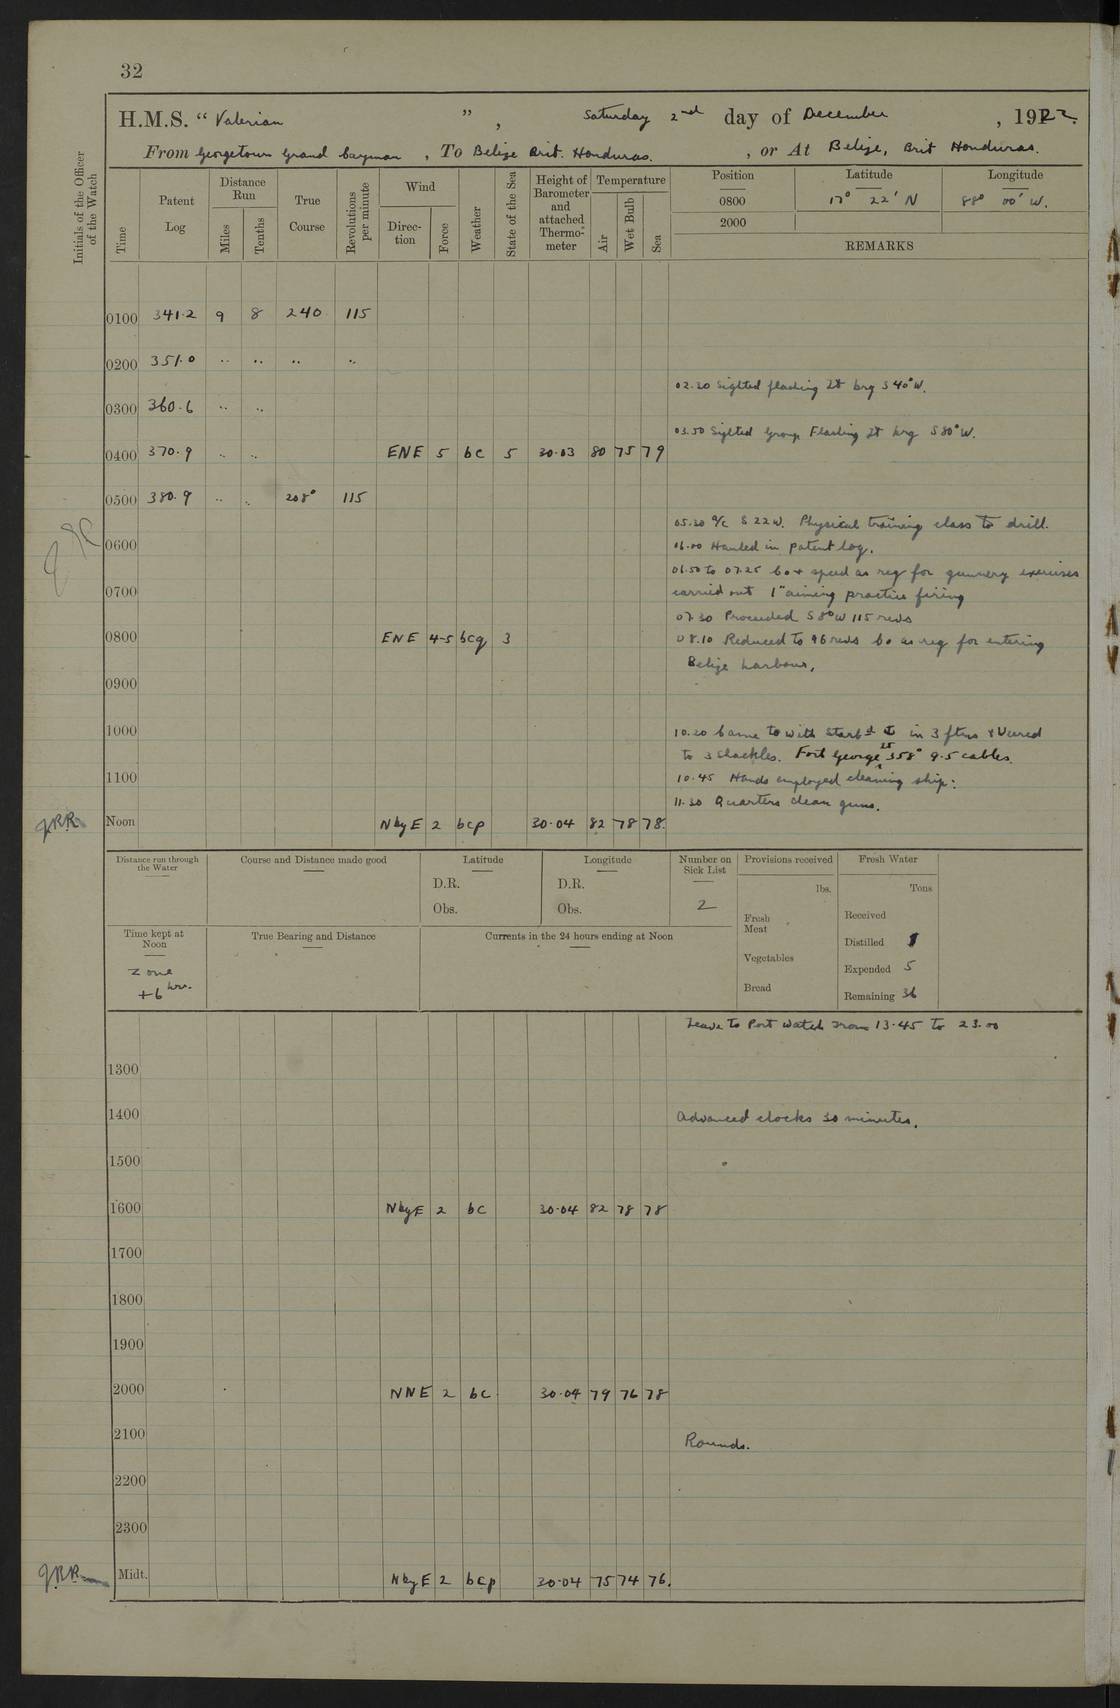 32
H.M.S. “ Valerian ” , Saturday 2nd day of December , 1922.
From Georgetown Grand Cayman , To Belize Brit. Honduras. , or At Belize, Brit Honduras.
Initials of the Officer of the Watch
Time
Patent Log
Distance Run
Miles
Tenths
True Course
Revolutions per minute
Wind
Direction
Force
Weather
State of the Sea
Height of Barometer and attached Thermometer
Temperature
Air
Wet Bulb
Sea
Position Latitude Longitude
0800 17° 22' N 88° 00' W.
2000
REMARKS
0100 341.2 9 8 240 115
0200 351.0 .. .. .. ..
02.20 Sighted flashing Lt brg S 40° W.
0300 360.6 .. ..
03.50 Sighted Group Flashing Lt brg S 80° W.
0400 370.9 .. .. ENE 5 bc 5 30.03 80 75 79
0500 380.9 .. .. 208° 115
05.20 a/c S 22 W. Physical training class to drill.
0600 06.00 Hauled in patent log.
06.50 to 07.25 Co + speed as req for gunnery exercises
0700 carried out 1" aiming practice firing
07.30 Proceeded S 8° W 115 revs
0800 ENE 4-5 bcq 3 08.10 Reduced to 96 revs Co as req for entering
Belize harbour.
0900
1000 10.20 Came to with Starbd ⚓ in 3 ftms & Veered
to 3 Shackles. Fort George Lt 358° 9.5 cables.
1100 10.45 Hands employed cleaning ship.
11.30 Quarters clean guns.
J.R.R. Noon N by E 2 bcp 30.04 82 78 78.
Distance run through the Water
Course and Distance made good
Latitude
D.R.
Obs.
Longitude
D.R.
Obs.
Number on Sick List
2
Provisions received
lbs.
Fresh Meat
Vegetables
Bread
Fresh Water
Tons
Received
Distilled
Expended 5
Remaining 36
Time kept at Noon
Zone
+6 hrs.
True Bearing and Distance
Currents in the 24 hours ending at Noon
Leave to Port Watch from 13.45 to 23.00
1300
1400 Advanced clocks 30 minutes.
1500
1600 N by E 2 bc 30.04 82 78 78
1700
1800
1900
2000 NNE 2 bc 30.04 79 76 78
2100 Rounds.
2200
2300
J.R.R. Midt. N by E 2 bcp 30.04 75 74 76.